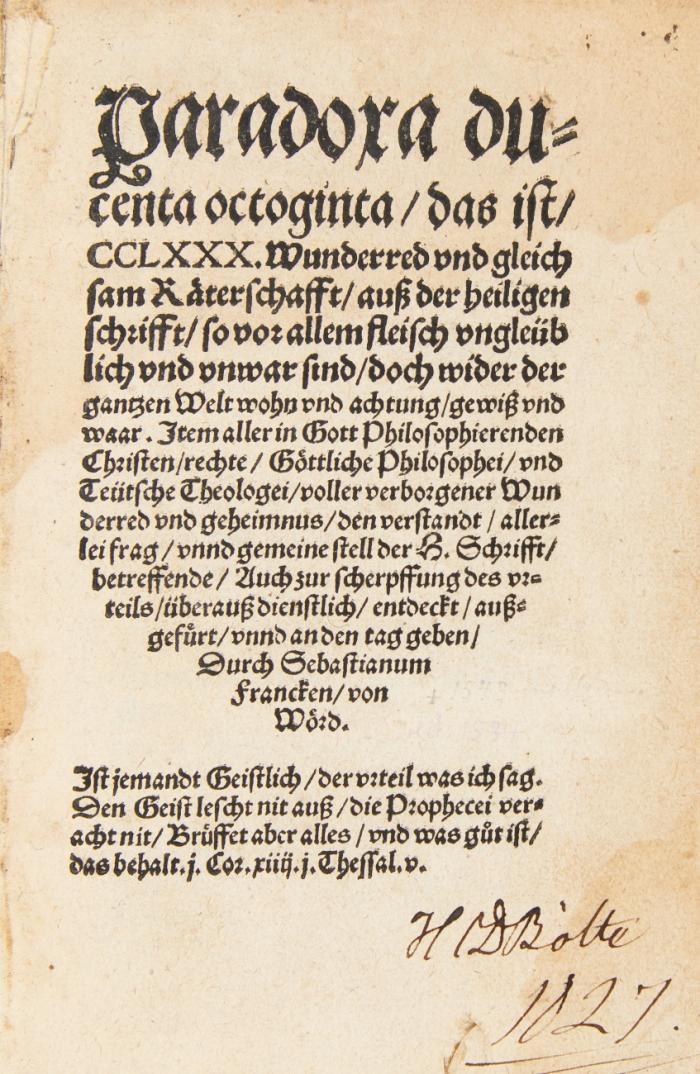 Paradoxa du-
centa octoginta / das ist /
CCLXXX. Wunderred vnd gleich
sam Räterschafft / auß der heiligen
schrifft / so vor allem fleisch vngleüb
lich vnd vnwar sind / doch wider der
gantzen Welt wohn vnd achtung / gewiß vnd
waar. Item aller in Gott Philosophierenden
Christen / rechte / Göttliche Philosophei / vnd
Teütsche Theologei / voller verborgener Wun
derred vnd geheimnus / den verstandt / aller-
lei frag / vnnd gemeine stell der H. Schrifft /
betreffende / Auch zur scherpffung des vr-
teils / überauß dienstlich / entdeckt / auß-
gefürt / vnnd an den tag geben /
Durch Sebastianum
Francken / von
Wörd.
Ist jemandt Geistlich / der vrteil was ich sag.
Den Geist lescht nit auß / die Prophecei ver-
acht nit / Brüffet aber alles / vnd was gůt ist /
das behalt. j. Cor. xiiij. j. Thessal. v.
H D Bolte
1827.